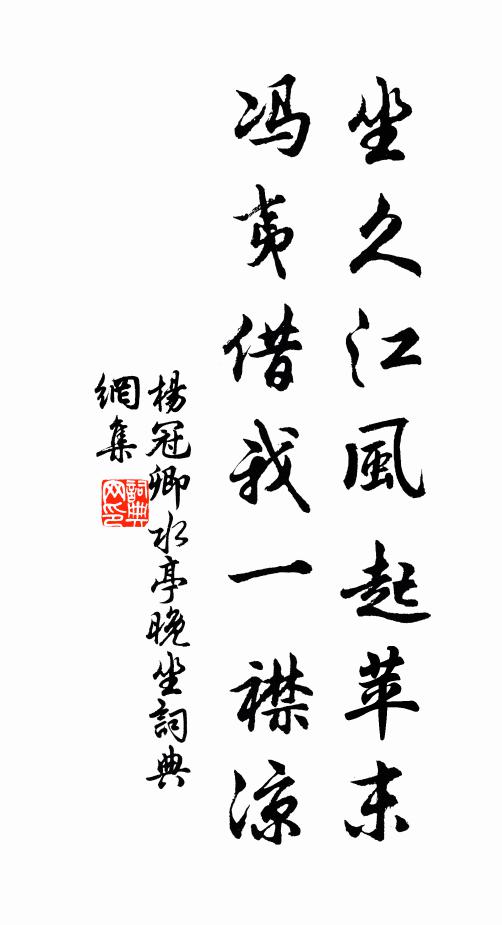 坐久江風起苹末
冯夷借我一襟凉
楊冠卿水亭晚坐詞典
網集
詞典网印